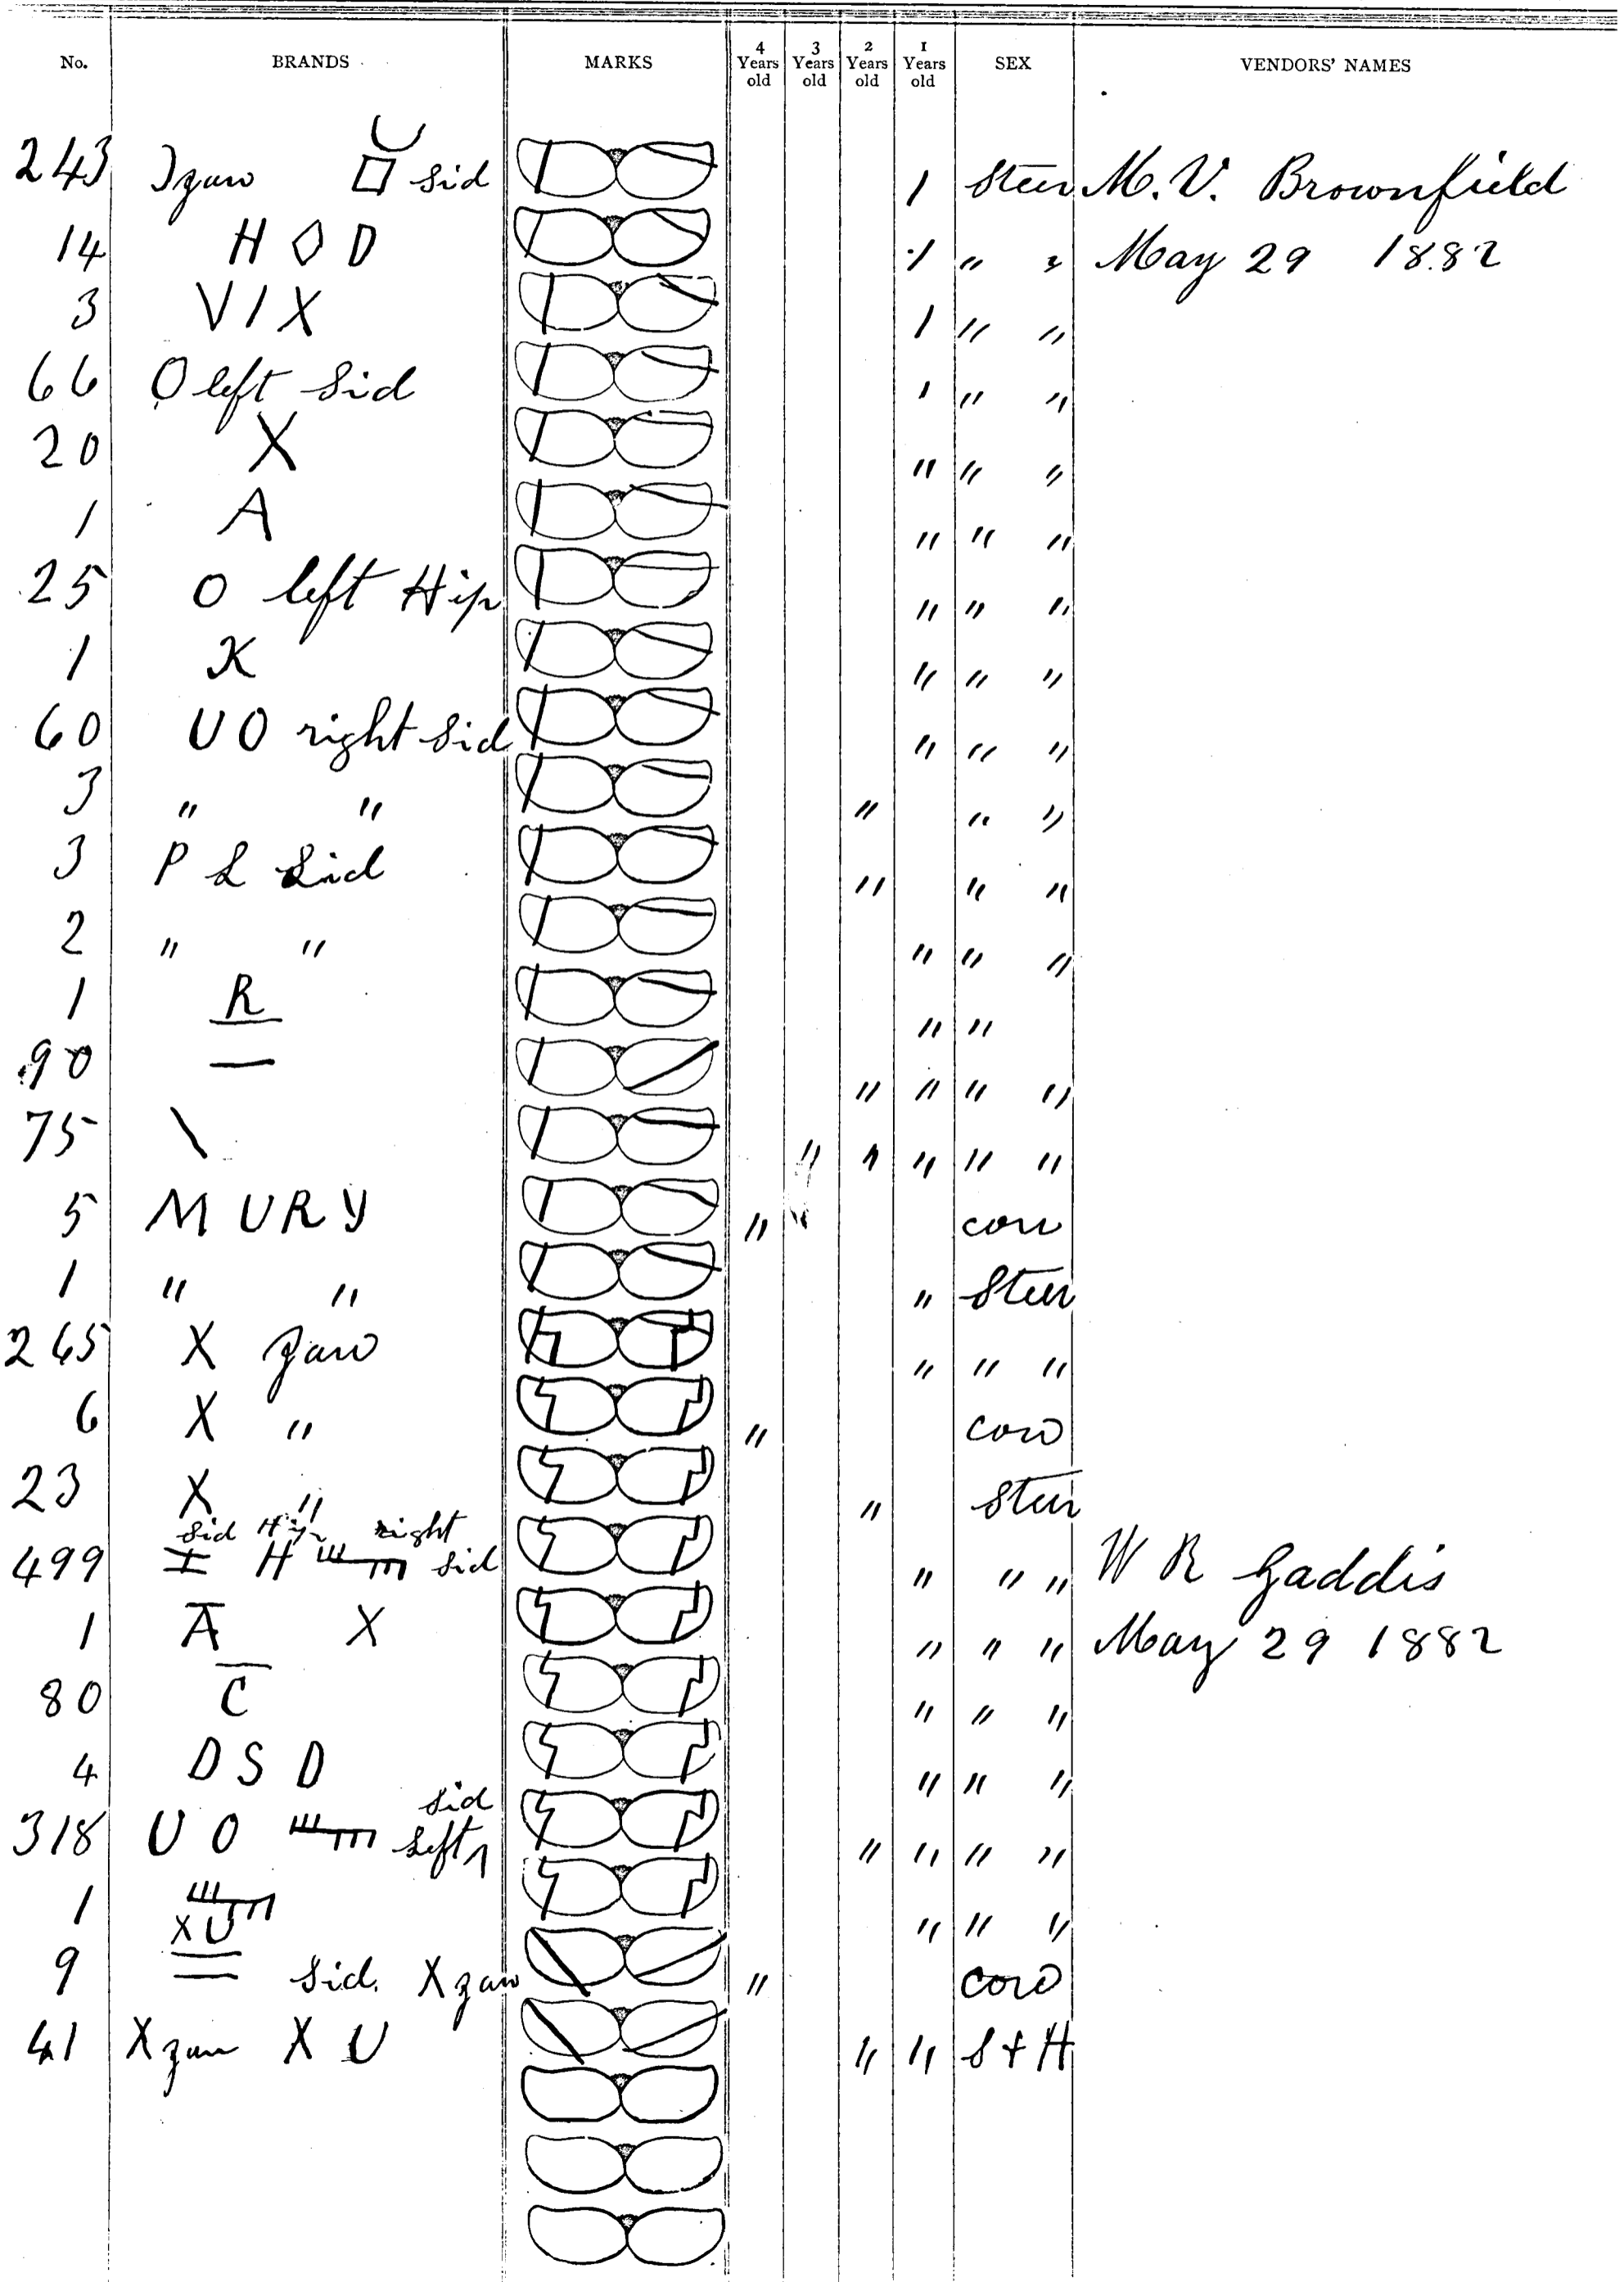 No. BRANDS MARKS 4 Years old 3 Years old 2 Years old 1 Years old SEX VENDORS' NAMES
243 sid 1 Steer M. V. Brownfield
14 H ◇ D 1 " " May 29 1882
3 V I X 1 " "
66 O left Sid 1 " "
20 X " " "
1 A " " "
25 O left Hip " " "
1 K " " "
60 U O right Sid " " "
3 " " " " "
3 P L Sid " " "
2 " " " " "
1 R " "
90 — " " " "
75 \ " " " " "
5 M U R Y " cow
1 " " " Steer
265 X Jaw " " "
6 X " " cow
23 X " " Steer
sid Hip right
499 H sid " " " W R Gaddis
1 A X " " " May 29 1882
80 C " " "
4 D S D " " "
sid
318 U O left 1 " " " "
1 " " "
X U
9 sid. X jaw " cow
41 X jaw X U " " S + H